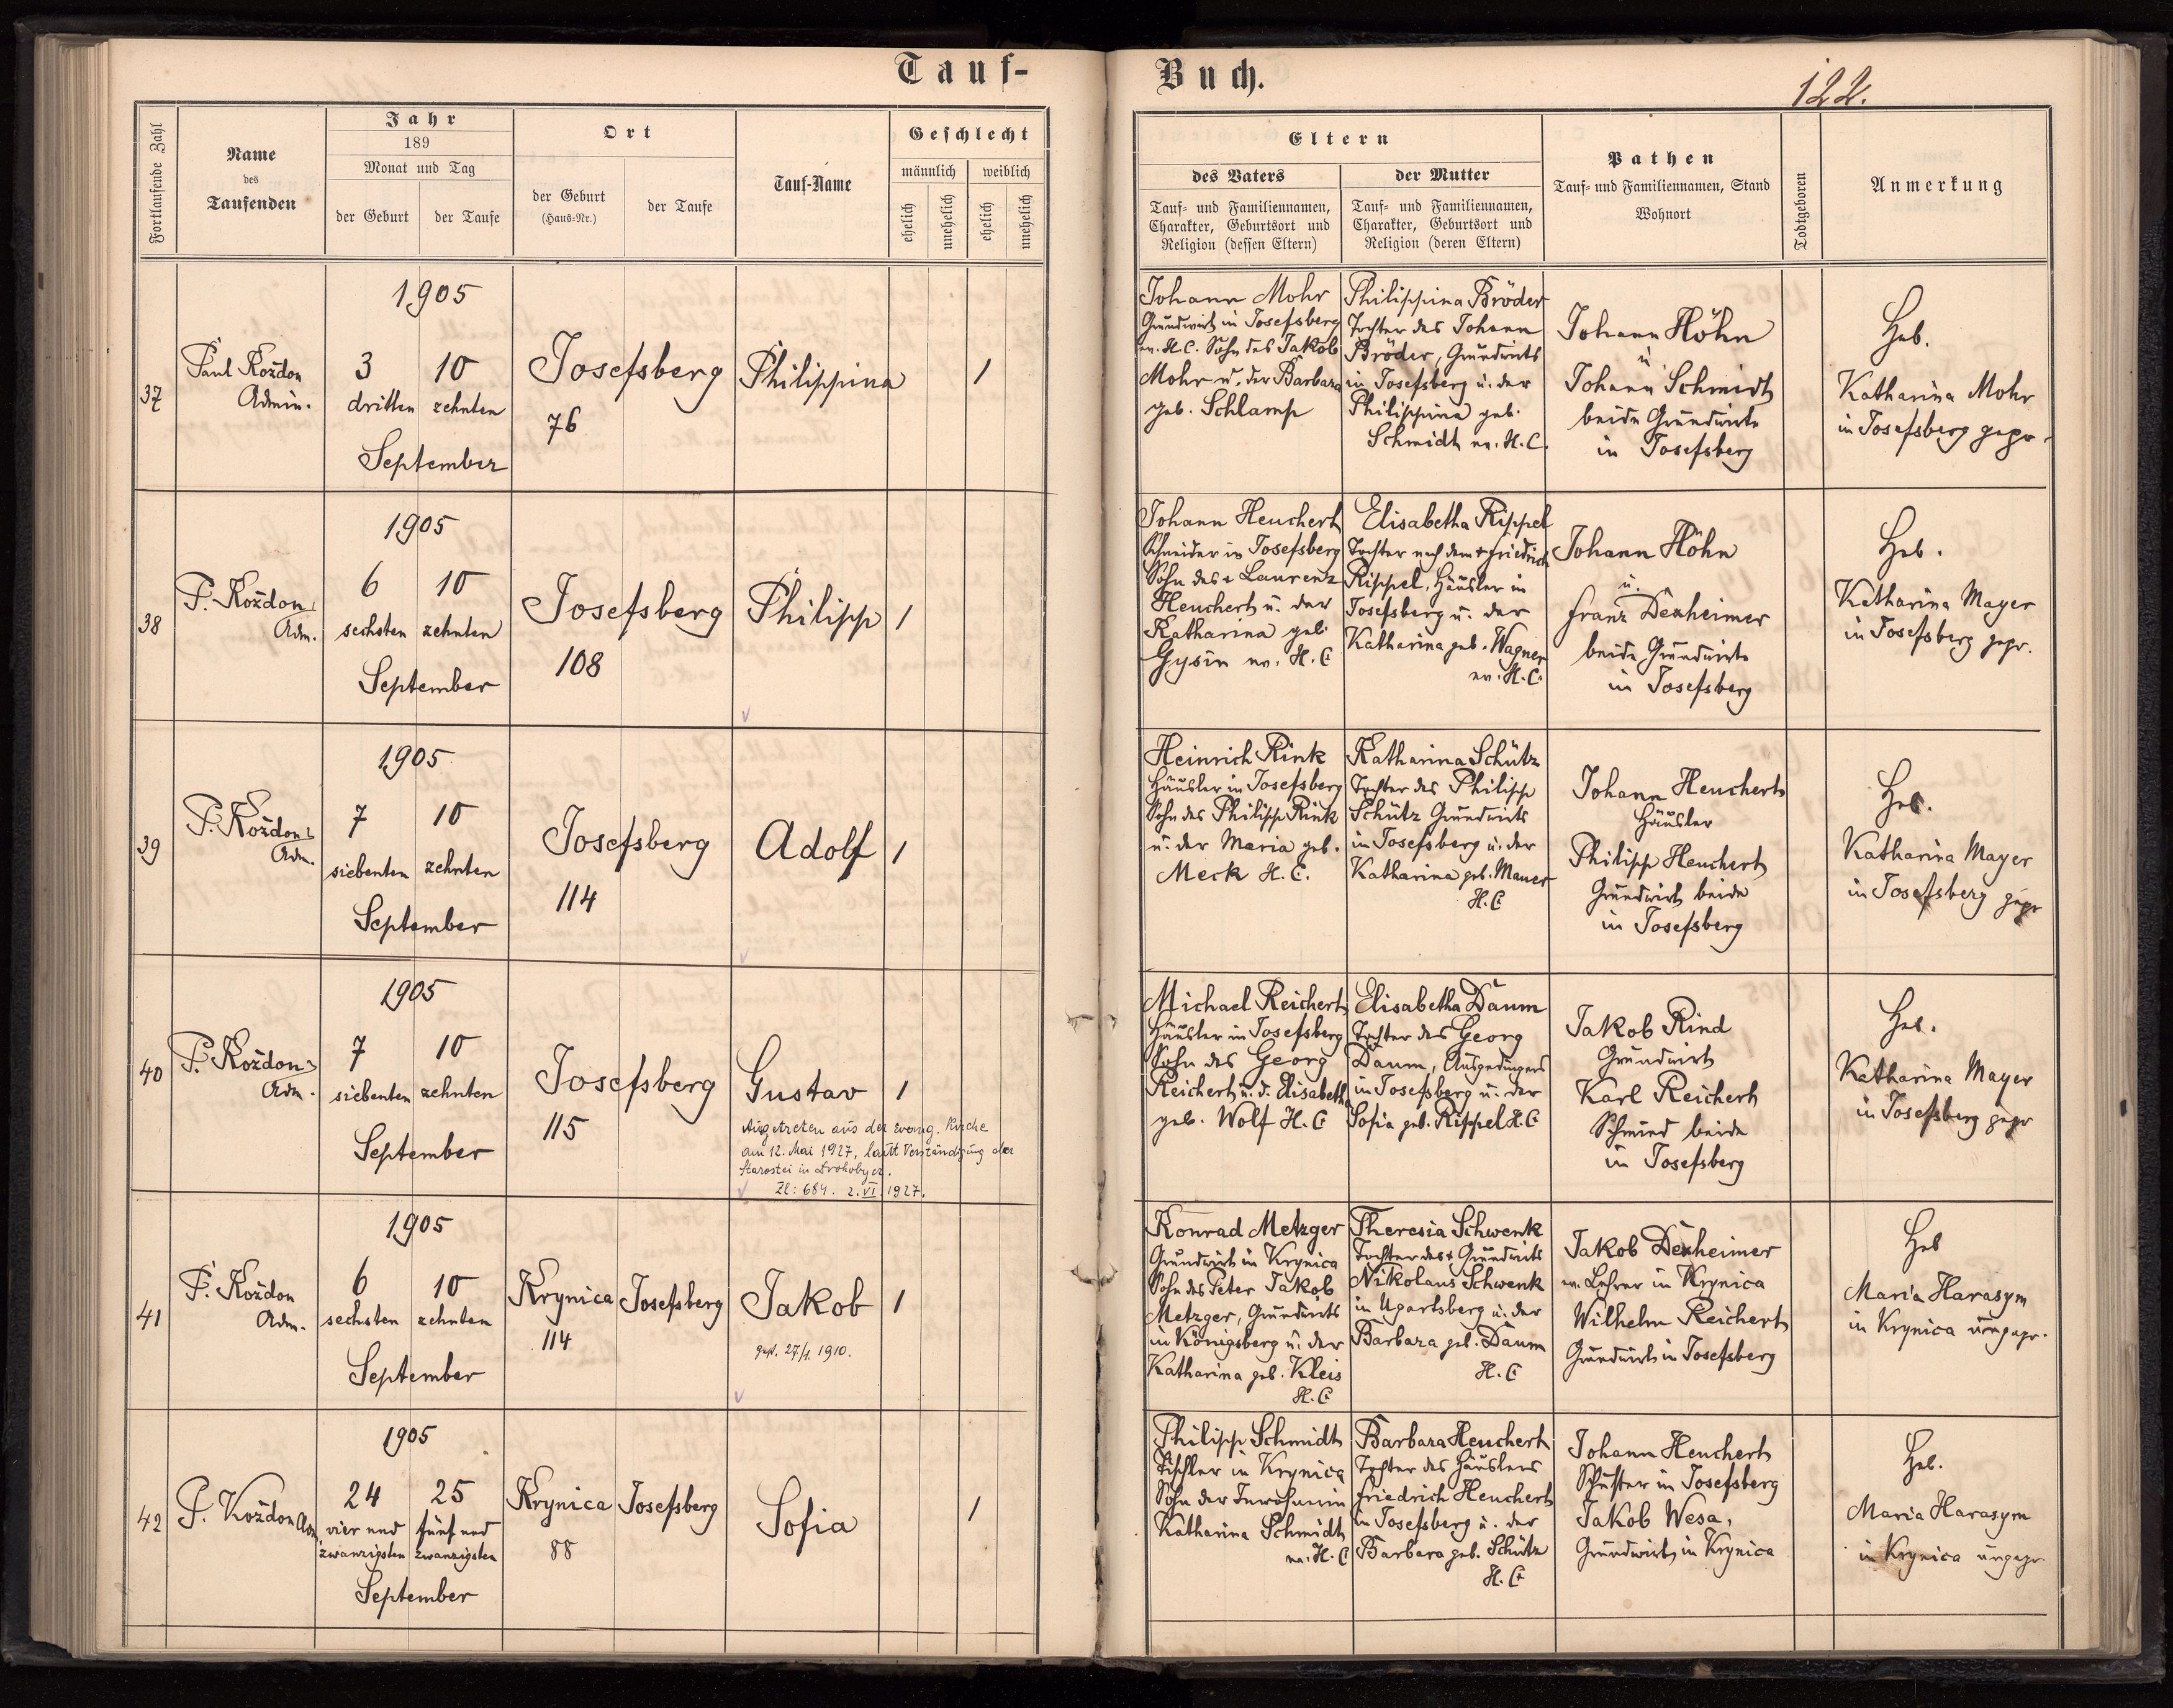 Tauf-
Buch.
122.
Fortlaufende Zahl
Name
des
Taufenden
Jahr
189
Monat und Tag
der Geburt
der Taufe
Ort
der Geburt
(Haus-Nr.)
der Taufe
Tauf-Name
Geschlecht
männlich
weiblich
ehelich
unehelich
ehelich
unehelich
Eltern
des Vaters
Tauf- und Familiennamen,
Charakter, Geburtsort und
Religion (dessen Eltern)
der Mutter
Tauf- und Familiennamen,
Charakter, Geburtsort und
Religion (deren Eltern)
Pathen
Tauf- und Familiennamen, Stand
Wohnort
Todtgeboren
Anmerkung
37
Paul Kożdon
Admin.
1905
3 10
dritten zehnten
September
Josefsberg
76
Philippina
1
Johann Mohr
Grundwirt in Josefsberg
ev. H.C. Sohn des Jakob
Mohr u. der Barbara
geb. Schlamp
Philippina Bröder
Tochter des Johann
Bröder, Grundwirts
in Josefsberg u. der
Philippina geb.
Schmidt ev. H.C.
Johann Höhn
u
Johann Schmidt
beide Grundwirte
in Josefsberg
Heb.
Katharina Mohr
in Josefsberg gepr.
38
P. Kożdon
Adm.
1905
6 10
sechsten zehnten
September
Josefsberg
108
Philipp
1
Johann Heuchert
Schneider in Josefsberg
Sohn des + Laurenz
Heuchert u. der
Katharina geb.
Gysin ev. H.C
Elisabetha Rippel
Tochter nach dem + Friedrich
Rippel, Häusler in
Josefsberg u. der
Katharina geb. Wagner
ev. H.C.
Johann Höhn
u.
Franz Dexheimer
beide Grundwirte
in Josefsberg
Heb.
Katharina Mayer
in Josefsberg gepr.
39
P. Kożdon
Adm.
1905
7 10
siebenten zehnten
September
Josefsberg
114
Adolf
1
Heinrich Rink
Häusler in Josefsberg
Sohn des Philipp Rink
u. der Maria geb.
Meck H.C.
Katharina Schütz
Tochter des Philipp
Schütz Grundwirts
in Josefsberg u. der
Katharina geb. Mauer
H.C
Johann Heuchert
Häusler
Philipp Heuchert
Grundwirt beide
in Josefsberg
Heb.
Katharina Mayer
in Josefsberg gepr
40
P. Kożdon
Adm.
1905
7 10
siebenten zehnten
September
Josefsberg
115
Gustav
1
Ausgetreten aus der evang. Kirche
am 12. Mai 1927, lautt Verständigung der
Starostei in Drohobycz.
Zl: 684. 2. VI. 1927.
Michael Reichert
Häusler in Josefsberg
Sohn des Georg
Reichert u. d. Elisabetha
geb. Wolf H.C
Elisabetha Daum
Tochter des Georg
Daum, Ausgedingers
in Josefsberg u. der
Sofia geb. Rippel H.C
Jakob Rind
Grundwirt
Karl Reichert
Schmied beide
in Josefsberg
Heb.
Katharina Mayer
in Josefsberg gepr
41
P. Kożdon
Adm.
1905
6 10
sechsten zehnten
September
Krynica
114
Josefsberg
Jakob
gest. 27/1. 1910.
1
Konrad Metzger
Grundwirt in Krynica
Sohn des Peter Jakob
Metzger, Grundwirts
in Königsberg u. der
Katharina geb. Kleis
H.C
Theresia Schwenk
Tochter des + Grundwirts
Nikolaus Schwenk
in Ugartsberg u. der
Barbara geb. Daum
H.C
Jakob Dexheimer
ev. Lehrer in Krynica
Wilhelm Reichert
Grundwirt in Josefsberg
Heb
Maria Harasym
in Krynica ungepr.
42
P. Kożdon Adm
1905
24 25
vier und fünf und
zwanzigsten zwanzigsten
September
Krynica
88
Josefsberg
Sofia
1
Philipp Schmidt
Tischler in Krynica
Sohn der Inwohnerin
Katharina Schmidt
ev. H.C
Barbara Heuchert
Tochter des Häuslers
Friedrich Heuchert
in Josefsberg u. der
Barbara geb. Schütz
H.C
Johann Heuchert
Schuster in Josefsberg
Jakob Wesa,
Grundwirt in Krynica
Heb.
Maria Harasym
in Krynica ungepr.